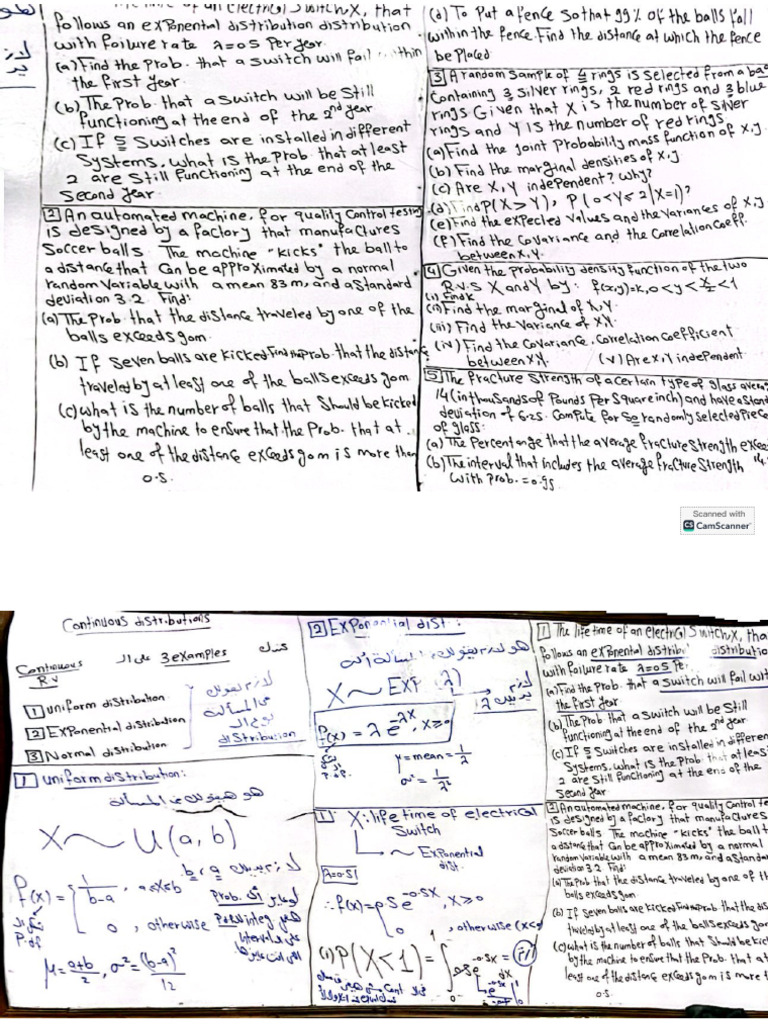 of an electrical switch, X, that
follows an exponential distribution distribution
with foilure rate λ=0.5 Per year.
(a) Find the Prob. that a switch will fail within
the first year.
(b) The Prob. that a switch will be still
functioning at the end of the 2nd year
(c) If 5 switches are installed in different
Systems, what is the Prob. that at least
2 are still functioning at the end of the
Second year
2 An automated machine, for quality Control testing
is designed by a factory that manufactures
Soccer balls. The machine "kicks" the ball to
a distance that Can be approximated by a normal
random variable with a mean 83 m, and a standard
deviation 3.2 Find:
(a) The Prob. that the distance traveled by one of the
balls exceeds 90m.
(b) If seven balls are kicked Find the prob. that the distance
traveled by at least one of the balls exceeds 90m
(c) what is the number of balls that should be kicked
by the machine to ensure that the Prob. that at
least one of the distance exceeds 90m is more than
0.5.
(d) To Put a fence so that 99% of the balls fall
within the fence. Find the distance at which the fence
be placed
3 A random sample of 4 rings is selected from a bag
Containing 3 silver rings, 2 red rings and 3 blue
rings Given that X is the number of silver
rings and Y is the number of red rings
(a) Find the joint Probability mass function of X,y
(b) Find the marginal densities of X,y
(c) Are X,Y independent? why?
(d) Find P(X>Y), P(0<Y≤2|X=1)?
(e) Find the expected values and the variances of X,y
(f) Find the Covariance and the Correlation Coeff.
between X,Y.
4 Given the Probability density function of the two
R.V.S X and Y by: f(x,y)=K, 0<y<x/2<1
(i) Find K
(ii) Find the marginal of X,Y.
(iii) Find the variance of X,Y.
(iv) Find the Covariance, Correlation Coefficient
between X,Y. (v) Are X,Y independent
5 The fracture strength of a certain type of glass avera
14 (in thousands of Pounds Per Square inch) and have a stan
deviation of 6.25. Compute for 50 randomly selected Piece
of glass:
(a) The Percentange that the average fracture strength excee
(b) The interval that includes the average fracture strength
with prob. = 0.95
Scanned with
CS CamScanner
Continuous distributions
Continuous
R.V
3 examples
1 Uniform distribution
2 Exponential distribution
3 Normal distribution
distribution
1 Uniform distribution:
X ~ U(a,b)
f(x) = { 1/(b-a) , a≤x≤b
0 , otherwise
P.d.f
μ = (a+b)/2 , σ² = (b-a)²/12
2 Exponential dist.:
X ~ Exp(λ)
f(x) = λ e^-λx, x≥0
μ = mean = 1/λ
σ² = 1/λ²
1 X: life time of electrical
Switch
~ Exponential
dist.
λ=0.5
∴ f(x) = 0.5 e^-0.5x, x≥0
0 , otherwise (x<0)
(i) P(X<1) = ∫ 0.5 e^-0.5x dx
1 The life time of an electrical switch, X, tha
follows an exponential distribut distributio
with foilure rate λ=0.5 Per
(a) Find the Prob. that a switch will fail wit
the first year
(b) The Prob that a switch will be still
functioning at the end of the 2nd year
(c) If 5 switches are installed in differen
Systems, what is the Prob. that at leas
2 are still functioning at the end of the
Second year
2 An automated machine, for quality Control te
is designed by a factory that manufactures
Soccer balls. The machine "kicks" the ball t
a distance that Can be approximated by a normal
random variable with a mean 83 m, and a standar
deviation 3.2 Find:
(a) The Prob. that the distance traveled by one of th
balls exceeds 90m
(b) If seven balls are kicked Find prob. that the dis
traveled by at least one of the balls exceeds 90m
(c) what is the number of balls that should be kic
by the machine to ensure that the Prob. that at
least one of the distance exceeds 90m is more t
0.5